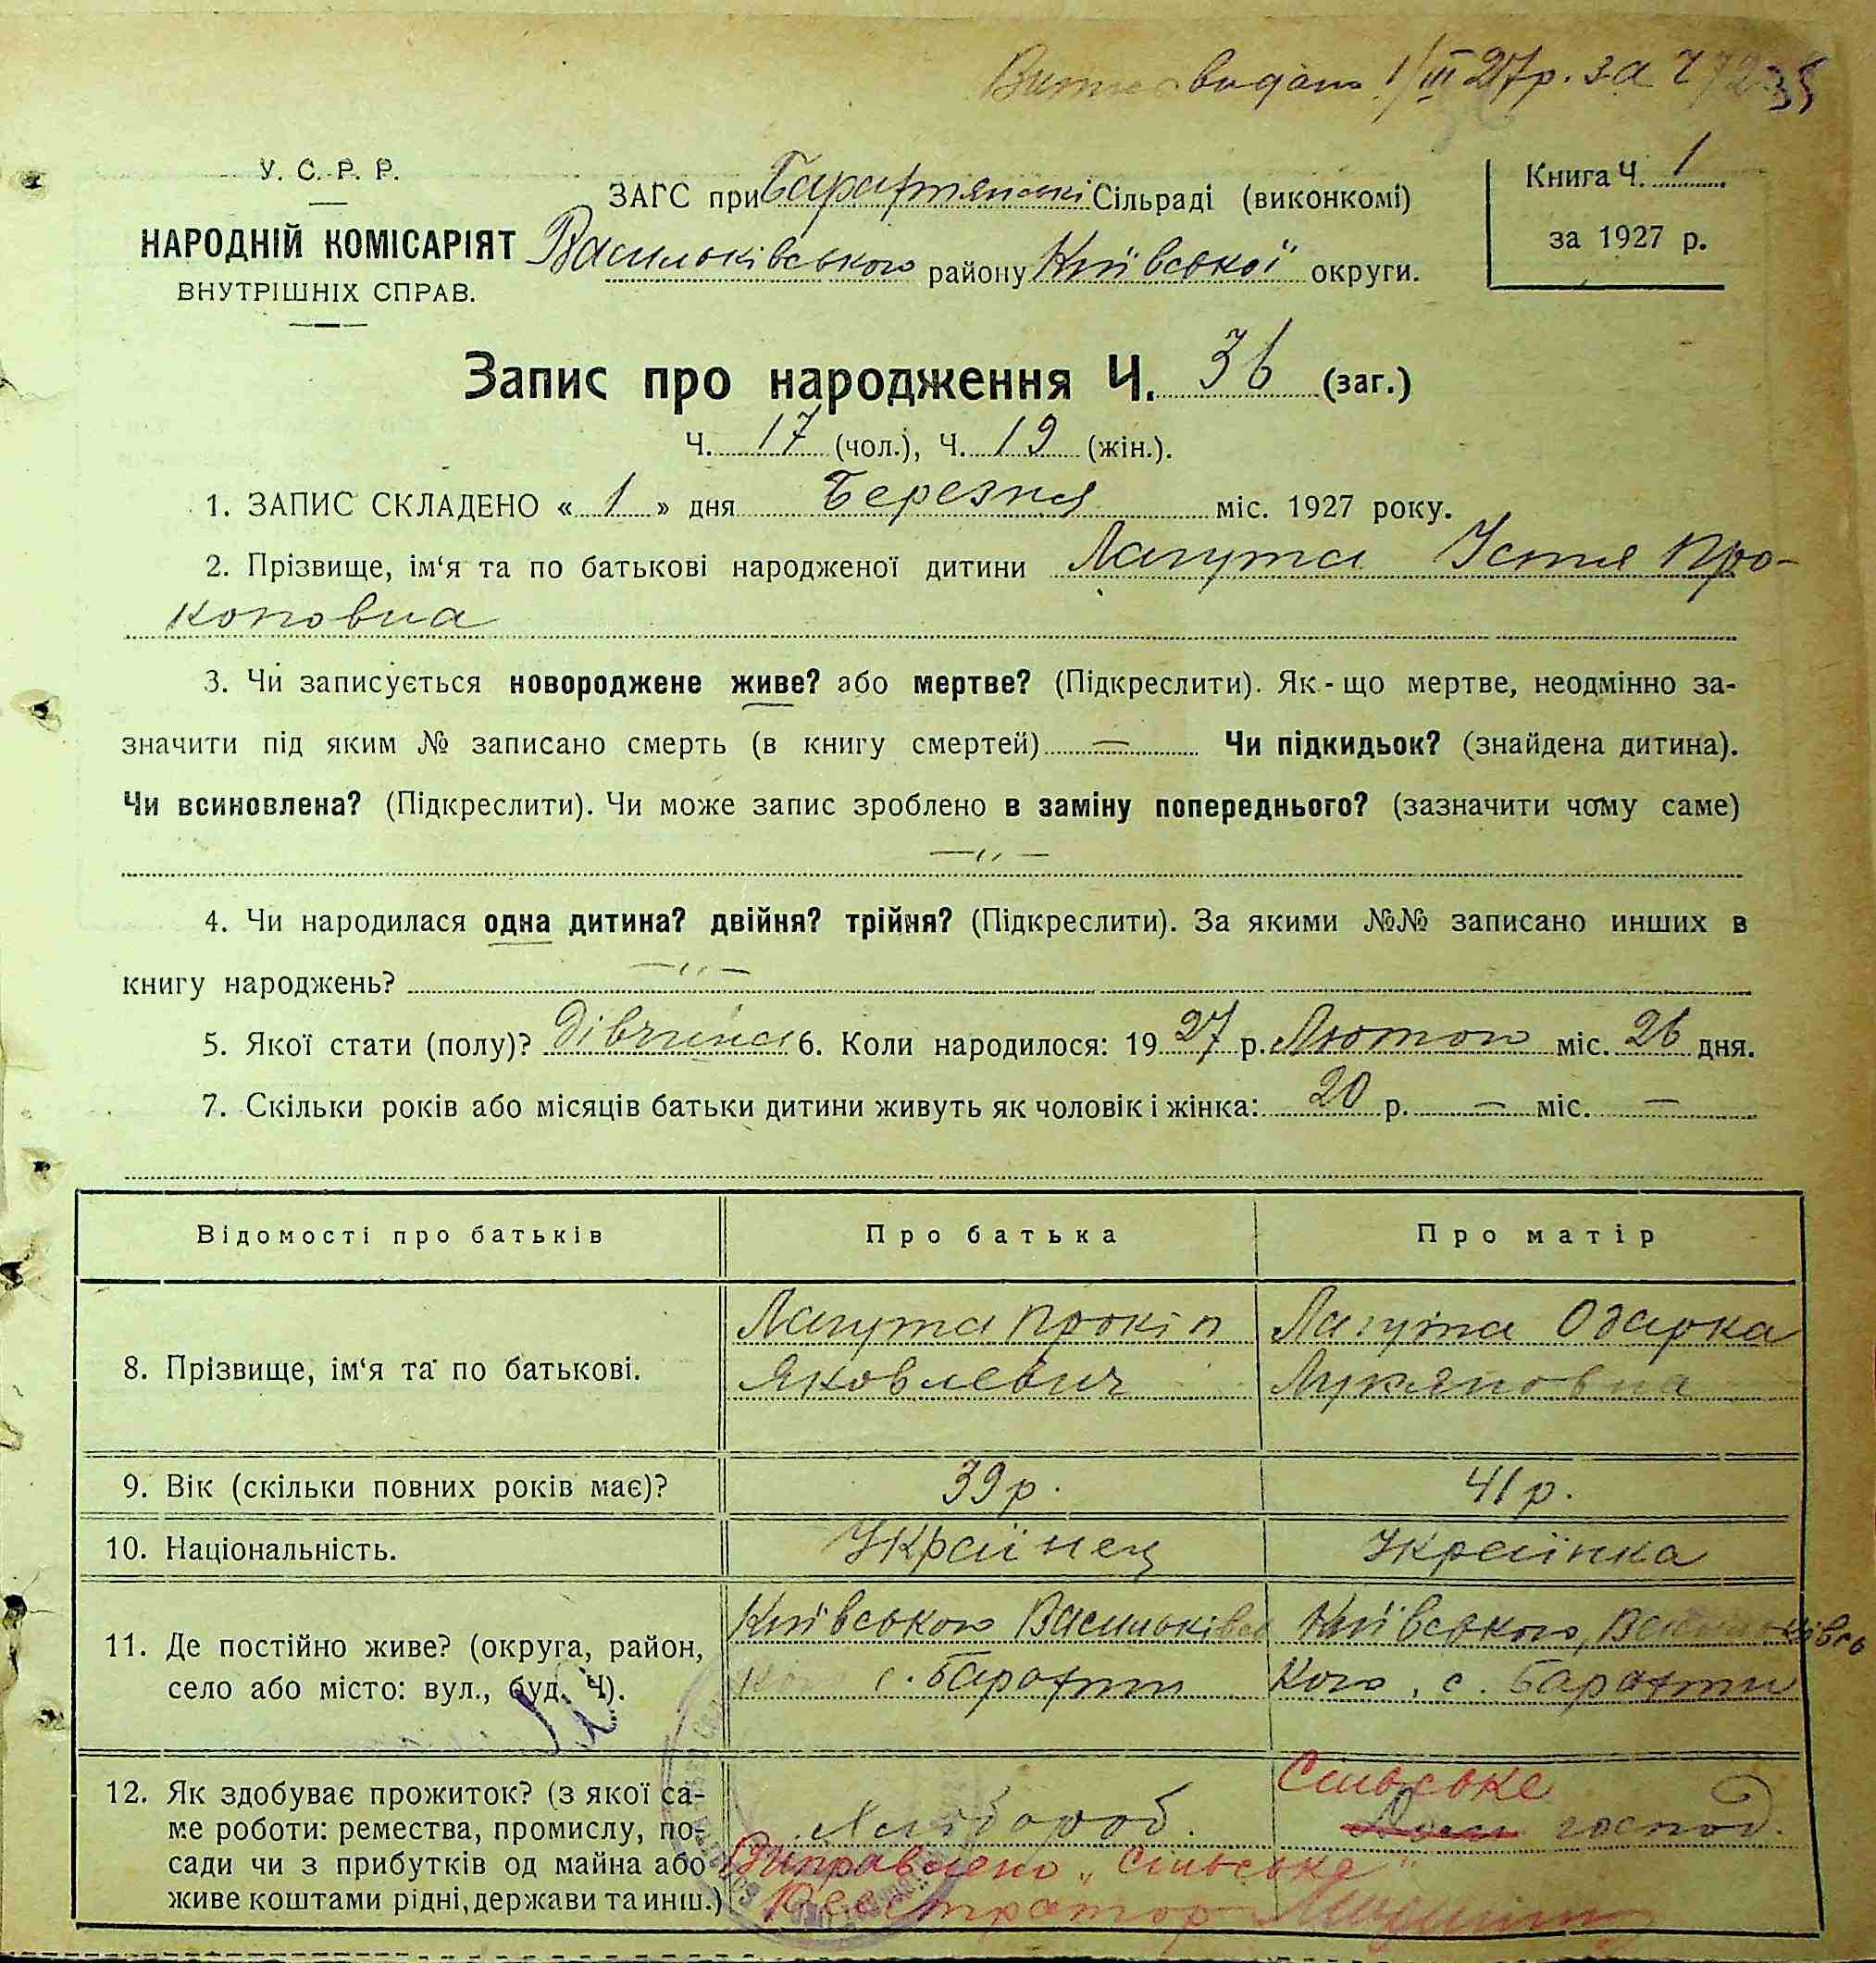 видано 1/III 27р. за Ч
У. С. Р. Р.
НАРОДНІЙ КОМІСАРІЯТ
ВНУТРІШНІХ СПРАВ.
ЗАГС при Барахтянські Сільраді (виконкомі)
Васильківського району Київської округи.
Книга Ч. 1
за 1927 р.
Запис про народження Ч. 36 (заг.)
Ч. 17 (чол.), Ч. 19 (жін.).
1. ЗАПИС СКЛАДЕНО « 1 » дня Березня міс. 1927 року.
2. Прізвище, ім‘я та по батькові народженої дитини Лагута Устя Про-
коповна
3. Чи записується новороджене живе? або мертве? (Підкреслити). Як-що мертве, неодмінно за-
значити під яким № записано смерть (в книгу смертей) — Чи підкидьок? (знайдена дитина).
Чи всиновлена? (Підкреслити). Чи може запис зроблено в заміну попереднього? (зазначити чому саме)
—„—
4. Чи народилася одна дитина? двійня? трійня? (Підкреслити). За якими №№ записано инших в
книгу народжень? —„—
5. Якої стати (полу)? дівчина 6. Коли народилося: 19 27 р. Лютого міс. 26 дня.
7. Скільки років або місяців батьки дитини живуть як чоловік і жінка: 20 р. — міс. —
Відомості про батьків
Про батька
Про матір
8. Прізвище, ім‘я та по батькові.
Лагута Прокіп
Яковлевич
Лагута Одарка
Лукяновна
9. Вік (скільки повних років має)?
39 р.
41 р.
10. Національність.
Українец
Українка
11. Де постійно живе? (округа, район,
село або місто: вул., буд. Ч).
Київського Васильківсь
кого с. Барахти
Київського, Васильківсь
кого, с. Барахти
12. Як здобуває прожиток? (з якої са-
ме роботи: ремества, промислу, по-
сади чи з прибутків од майна або
живе коштами рідні, держави та инш.)
Хлібороб.
Сільське
Дом господ.
Виправлено „Сільське"
Реєстратор